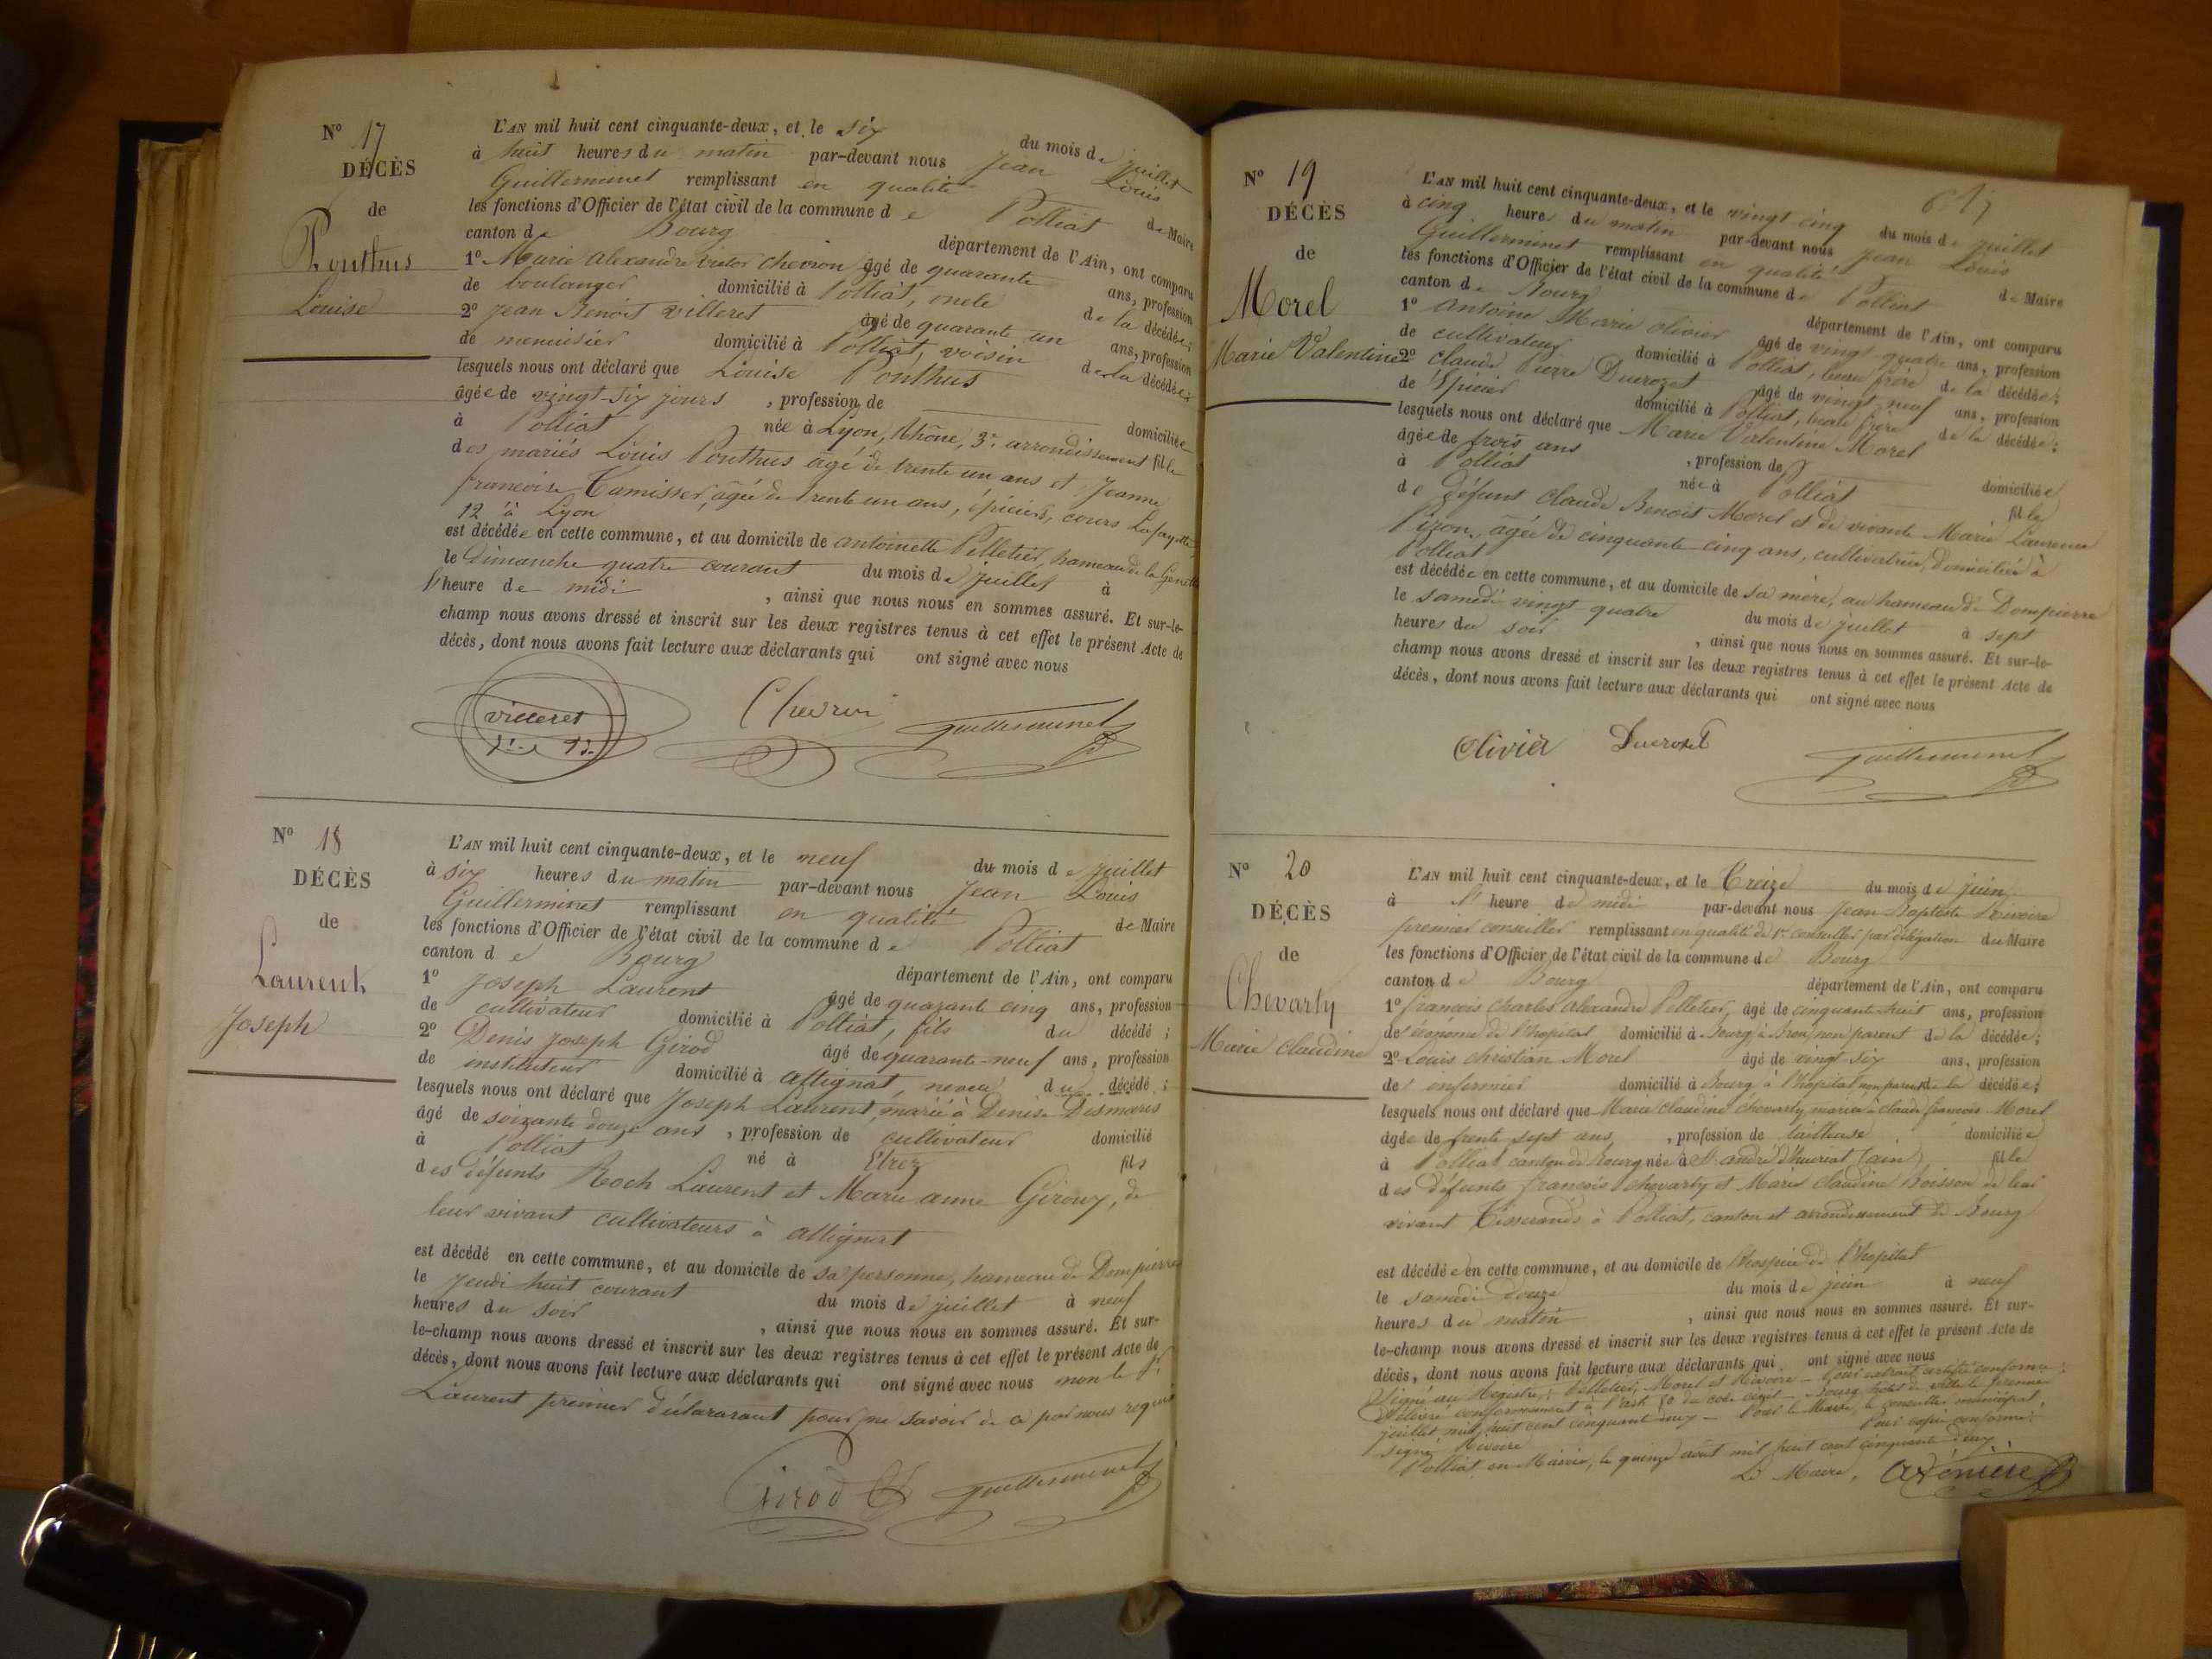 N° 17
DÉCÈS
de
Ponthus
Louise
L'AN mil huit cent cinquante-deux, et le six du mois de juillet
à huit heures du matin par-devant nous Jean Louis
Guillerminet remplissant en qualité de Maire
les fonctions d'Officier de l'état civil de la commune de Polliat
canton de Bourg département de l'Ain, ont comparu
1° Marie Alexandre victor chevron âgé de quarante ans, profession
de boulanger domicilié à Polliat, oncle de la décédée;
2° Jean Benoit Villeret âgé de quarante un ans, profession
de menuisier domicilié à Polliat, voisin de la décédée;
lesquels nous ont déclaré que Louise Ponthus
âgée de vingt-six jours, profession de domiciliée
à Polliat née à Lyon, Rhône, 3e arrondissement fille
des mariés Louis Ponthus âgé de trente un ans et Jeanne
françoise Tamisser, âgée de trente un ans, épiciers, cours Lafayette
12 à Lyon
est décédée en cette commune, et au domicile de antoinette Pelletier, hameau de la
le Dimanche quatre courant du mois de juillet à
l'heure de midi, ainsi que nous nous en sommes assuré. Et sur-le-
champ nous avons dressé et inscrit sur les deux registres tenus à cet effet le présent Acte de
décès, dont nous avons fait lecture aux déclarants qui ont signé avec nous
villeret Chevron guillerminet
N° 18
DÉCÈS
de
Laurent
Joseph
L'AN mil huit cent cinquante-deux, et le neuf du mois de juillet
à six heures du matin par-devant nous Jean Louis
Guillerminet remplissant en qualité de Maire
les fonctions d'Officier de l'état civil de la commune de Polliat
canton de Bourg département de l'Ain, ont comparu
1° Joseph Laurent âgé de quarante cinq ans, profession
de cultivateur domicilié à Polliat, fils du décédé;
2° Denis Joseph Girod âgé de quarante-neuf ans, profession
de instituteur domicilié à attignat, neveu du décédé;
lesquels nous ont déclaré que Joseph Laurent, marié à Denise Desmaris
âgé de soixante douze ans, profession de cultivateur domicilié
à Polliat né à Etrez fils
des défunts Roch Laurent et Marie anne Girouy, de
leur vivant cultivateurs à attignat
est décédé en cette commune, et au domicile de sa personne, hameau de Dompierre
le jeudi huit courant du mois de juillet à neuf
heures du soir, ainsi que nous nous en sommes assuré. Et sur-
le-champ nous avons dressé et inscrit sur les deux registres tenus à cet effet le présent Acte de
décès, dont nous avons fait lecture aux déclarants qui ont signé avec nous non le
Laurent premier déclarant pour ne savoir de ce par nous requis
Girod guillerminet
N° 19
DÉCÈS
de
Morel
Marie Valentine
L'AN mil huit cent cinquante-deux, et le vingt cinq du mois de juillet
à cinq heures du matin par-devant nous Jean Louis
Guillerminet remplissant en qualité de Maire
les fonctions d'Officier de l'état civil de la commune de Polliat
canton de Bourg département de l'Ain, ont comparu
1° Antoine Marie olivier âgé de vingt quatre ans, profession
de cultivateur domicilié à Polliat, beau frère de la décédée;
2° claude Pierre Ducrozet âgé de vingt neuf ans, profession
de Epicier domicilié à Polliat, beau frère de la décédée;
lesquels nous ont déclaré que Marie Valentine Morel
âgée de trois ans, profession de domiciliée
à Polliat née à Polliat fille
de défunt claude Benoit Morel et de vivante Marie Laurence
Pizon, âgée de cinquante-cinq ans, cultivatrice, domiciliée à
Polliat
est décédée en cette commune, et au domicile de sa mère, au hameau de Dompierre
le samedi vingt quatre du mois de juillet à sept
heures du soir, ainsi que nous nous en sommes assuré. Et sur-le-
champ nous avons dressé et inscrit sur les deux registres tenus à cet effet le présent Acte de
décès, dont nous avons fait lecture aux déclarants qui ont signé avec nous
Olivier Ducrozet guillerminet
N° 20
DÉCÈS
de
Chevarly
Marie Claudine
L'AN mil huit cent cinquante-deux, et le Treize du mois de juin
à l' heure de midi par-devant nous Jean Baptiste Rivoire
premier conseiller remplissant en qualité de 1er conseiller par délégation du Maire
les fonctions d'Officier de l'état civil de la commune de Bourg
canton de Bourg département de l'Ain, ont comparu
1° françois charles alexandre Pelletier, âgé de cinquante huit ans, profession
de économe de l'hopital domicilié à Bourg à Brou, non parent de la décédée;
2° Louis christian Morel âgé de vingt-six ans, profession
de infirmier domicilié à Bourg à l'hopital non parent de la décédée;
lesquels nous ont déclaré que Marie claudine chevarly, mariée à claude françois Morel
âgée de trente sept ans, profession de tailleuse domiciliée
à Polliat canton de Bourg née à St andré d'huiriat (ain) fille
des défunts françois chevarly et Marie Claudine Boisson de leur
vivant Tisserands à Polliat, canton et arrondissement de Bourg
est décédée en cette commune, et au domicile de l'hospice de l'hopital
le samedi douze du mois de juin à neuf
heures du matin, ainsi que nous nous en sommes assuré. Et sur-
le-champ nous avons dressé et inscrit sur les deux registres tenus à cet effet le présent Acte de
décès, dont nous avons fait lecture aux déclarants qui ont signé avec nous
Signé au Registre: Pelletier, Morel et Rivoire - Pour extrait certifié conforme:
Délivré conformément à l'art. 80 du code civil - Bourg hotel de ville le premier
juillet mil huit cent cinquant deux - Pour le Maire, le conseiller municipal,
signé Rivoire Pour copie conforme:
Polliat, en Mairie, le quinze août mil huit cent cinquante deux.
Le Maire,